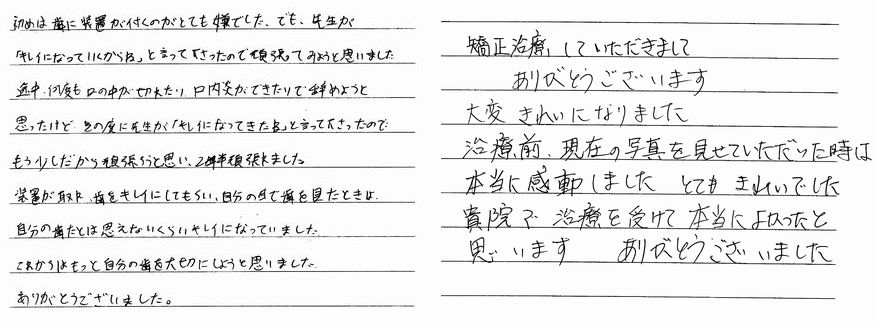 初めは歯に装置が付くのがとても嫌でした。でも、先生が
「キレイになっていくからね」と言って下さったので頑張ってみようと思いました
途中、何度も口の中が切れたり、口内炎ができたりで辞めようと
思ったけど、その度に先生が「キレイになってきたね」と言って下さったので
もう少しだから頑張ろうと思い、2年半頑張れました。
装置が取れ、歯をキレイにしてもらい、自分の目で歯を見たときは、
自分の歯だとは思えないくらいキレイになっていました。
これからはもっと自分の歯を大切にしようと思いました。
ありがとうございました。
矯正治療していただきまして
ありがとうございます
大変きれいになりました
治療前、現在の写真を見せていただった時は
本当に感動しました とてもきれいでした
貴院で治療を受けて本当によかったと
思います ありがとうございました